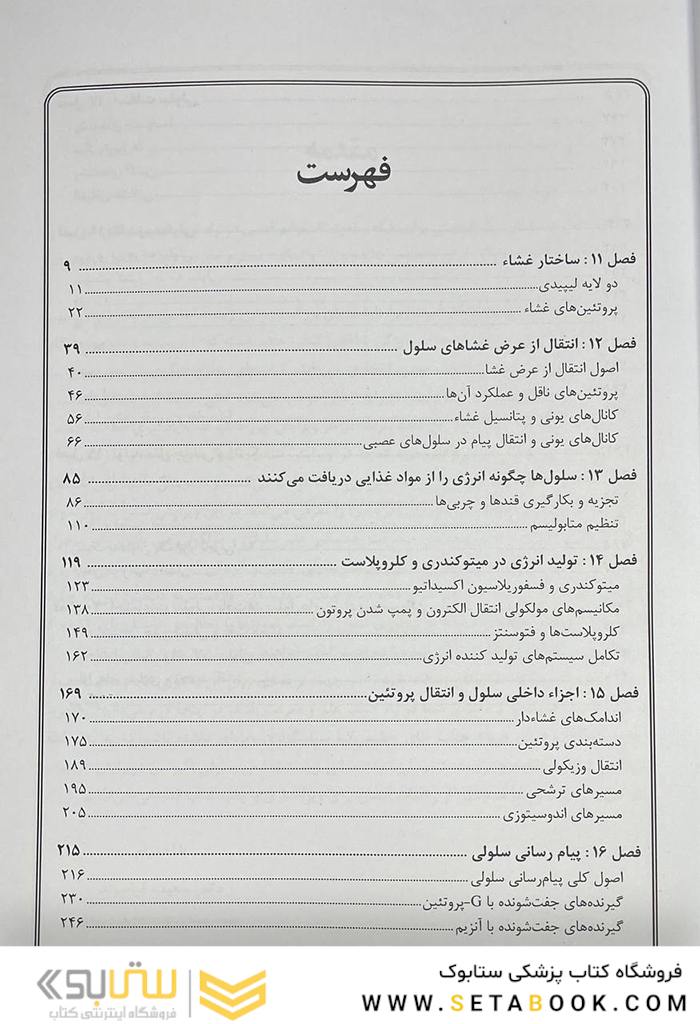 فهرست
فصل ۱۱ : ساختار غشاء ........ ۹
دو لایه لیپیدی ........ ۱۱
پروتئین‌های غشاء ........ ۲۲
فصل ۱۲ : انتقال از عرض غشاهای سلول ........ ۳۹
اصول انتقال از عرض غشا ........ ۴۰
پروتئین‌های ناقل و عملکرد آن‌ها ........ ۴۶
کانال‌های یونی و پتانسیل غشاء ........ ۵۶
کانال‌های یونی و انتقال پیام در سلول‌های عصبی ........ ۶۶
فصل ۱۳ : سلول‌ها چگونه انرژی را از مواد غذایی دریافت می‌کنند ........ ۸۵
تجزیه و بکارگیری قندها و چربی‌ها ........ ۸۶
تنظیم متابولیسم ........ ۱۱۰
فصل ۱۴ : تولید انرژی در میتوکندری و کلروپلاست ........ ۱۱۹
میتوکندری و فسفوریلاسیون اکسیداتیو ........ ۱۲۳
مکانیسم‌های مولکولی انتقال الکترون و پمپ شدن پروتون ........ ۱۳۸
کلروپلاست‌ها و فتوسنتز ........ ۱۴۹
تکامل سیستم‌های تولید کننده انرژی ........ ۱۶۲
فصل ۱۵ : اجزاء داخلی سلول و انتقال پروتئین ........ ۱۶۹
اندامک‌های غشاءدار ........ ۱۷۰
دسته‌بندی پروتئین ........ ۱۷۵
انتقال وزیکولی ........ ۱۸۹
مسیرهای ترشحی ........ ۱۹۵
مسیرهای اندوسیتوزی ........ ۲۰۵
فصل ۱۶ : پیام رسانی سلولی ........ ۲۱۵
اصول کلی پیام‌رسانی سلولی ........ ۲۱۶
گیرنده‌های جفت‌شونده با G-پروتئین ........ ۲۳۰
گیرنده‌های جفت‌شونده با آنزیم ........ ۲۴۶
فروشگاه کتاب پزشکی ستابوک
WWW.SETABOOK.COM
ستابوک
فروشگاه اینترنتی کتاب